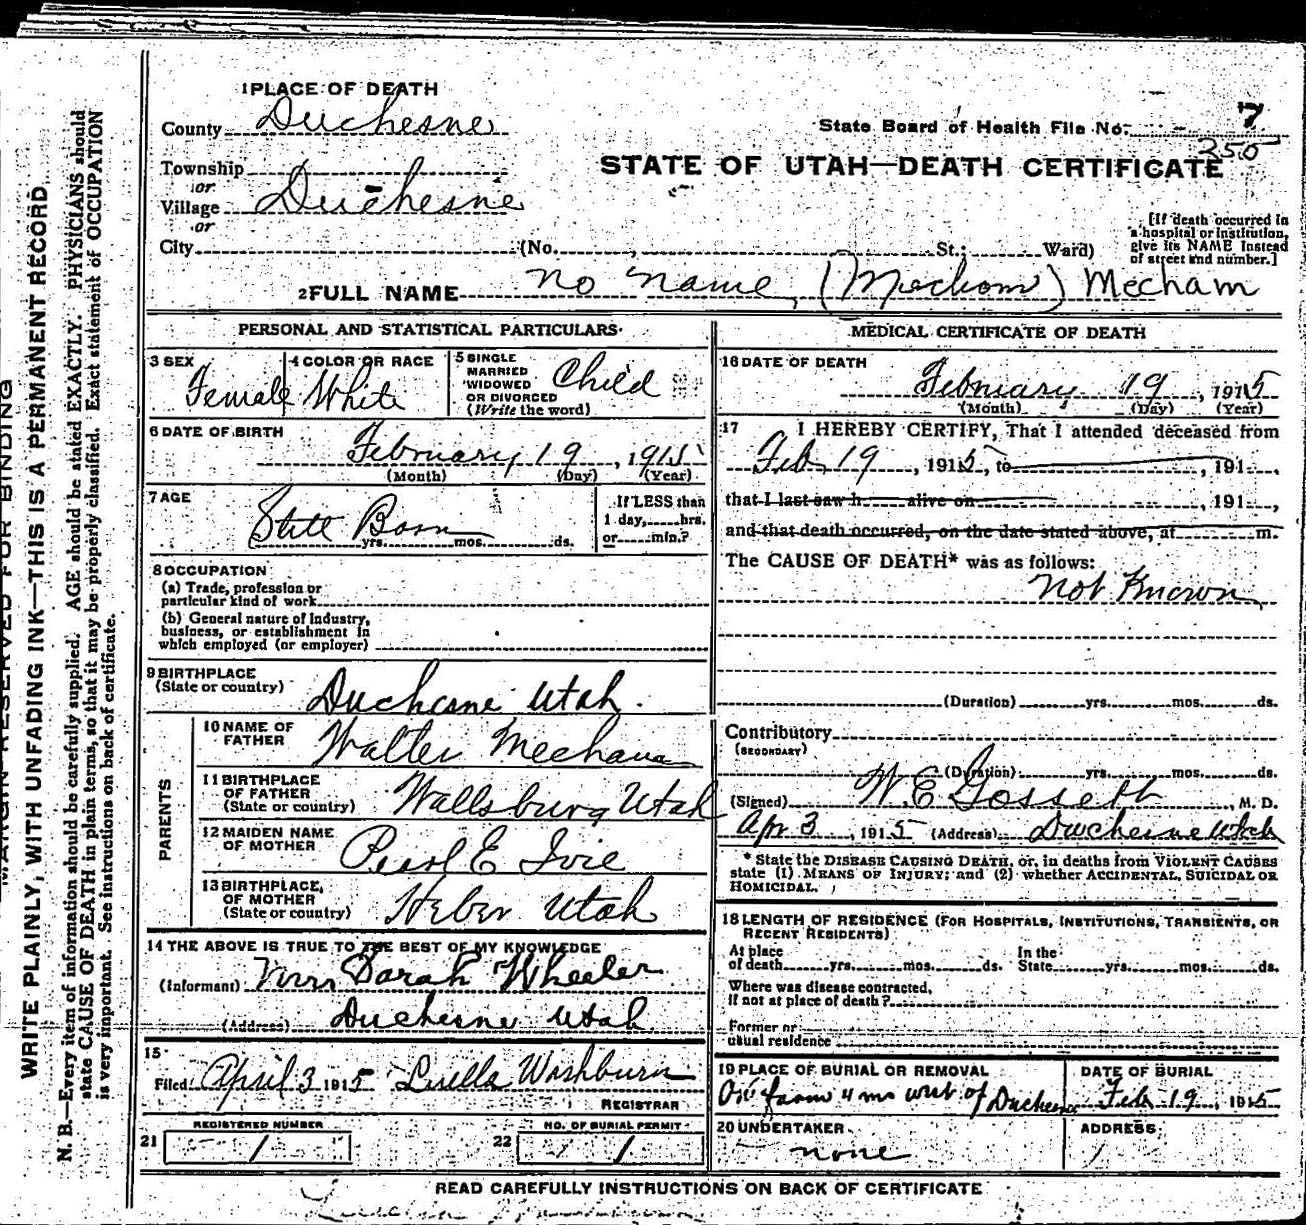 1 PLACE OF DEATH
County Duchesne
State Board of Health File No. 7
250
Township
or
Village Duchesne
or
STATE OF UTAH—DEATH CERTIFICATE
[If death occurred in
a hospital or institution,
give its NAME instead
of street and number.]
City (No. , St.; Ward)
2 FULL NAME No Name, (Mecham) Mecham
PERSONAL AND STATISTICAL PARTICULARS
3 SEX
Female
4 COLOR OR RACE
White
5 SINGLE
MARRIED
WIDOWED
OR DIVORCED
(Write the word)
Child
6 DATE OF BIRTH
February 19, 1915
(Month) (Day) (Year)
7 AGE
Still Born
yrs. mos. ds.
If LESS than
1 day, hrs.
or min.?
8 OCCUPATION
(a) Trade, profession or
particular kind of work
(b) General nature of industry,
business, or establishment in
which employed (or employer)
9 BIRTHPLACE
(State or country)
Duchesne Utah.
PARENTS
10 NAME OF
FATHER
Walter Mecham
11 BIRTHPLACE
OF FATHER
(State or country)
Wallsburg Utah
12 MAIDEN NAME
OF MOTHER
Pearl E Ivie
13 BIRTHPLACE,
OF MOTHER
(State or country)
Heber Utah
14 THE ABOVE IS TRUE TO THE BEST OF MY KNOWLEDGE
(Informant) Mrs Sarah Wheeler
(Address) Duchesne Utah
15
Filed April 3 1915 Luella Washburn
REGISTRAR
21
REGISTERED NUMBER
1
22
NO. OF BURIAL PERMIT
1
MEDICAL CERTIFICATE OF DEATH
16 DATE OF DEATH
February 19, 1915
(Month) (Day) (Year)
17 I HEREBY CERTIFY, That I attended deceased from
Feb 19, 1915, to , 191 ,
that I last saw h alive on , 191 ,
and that death occurred, on the date stated above, at m.
The CAUSE OF DEATH* was as follows:
Not Known
(Duration) yrs. mos. ds.
Contributory
(SECONDARY)
(Duration) yrs. mos. ds.
(Signed) W.E Gossett, M. D.
Apr 3, 1915 (Address) Duchesne Utah
* State the DISEASE CAUSING DEATH, or, in deaths from VIOLENT CAUSES
state (1) MEANS OF INJURY; and (2) whether ACCIDENTAL, SUICIDAL OR
HOMICIDAL.
18 LENGTH OF RESIDENCE (FOR HOSPITALS, INSTITUTIONS, TRANSIENTS, OR
RECENT RESIDENTS)
At place
of death yrs. mos. ds.
In the
State yrs. mos. ds.
Where was disease contracted,
if not at place of death?
Former or
usual residence
19 PLACE OF BURIAL OR REMOVAL
On farm 4 mi west of Duchesne
DATE OF BURIAL
Feb 19, 1915
20 UNDERTAKER
none
ADDRESS
READ CAREFULLY INSTRUCTIONS ON BACK OF CERTIFICATE
MARGIN RESERVED FOR BINDING
WRITE PLAINLY, WITH UNFADING INK—THIS IS A PERMANENT RECORD
N. B.—Every item of information should be carefully supplied. AGE should be stated EXACTLY. PHYSICIANS should
state CAUSE OF DEATH in plain terms, so that it may be properly classified. Exact statement of OCCUPATION
is very important. See instructions on back of certificate.